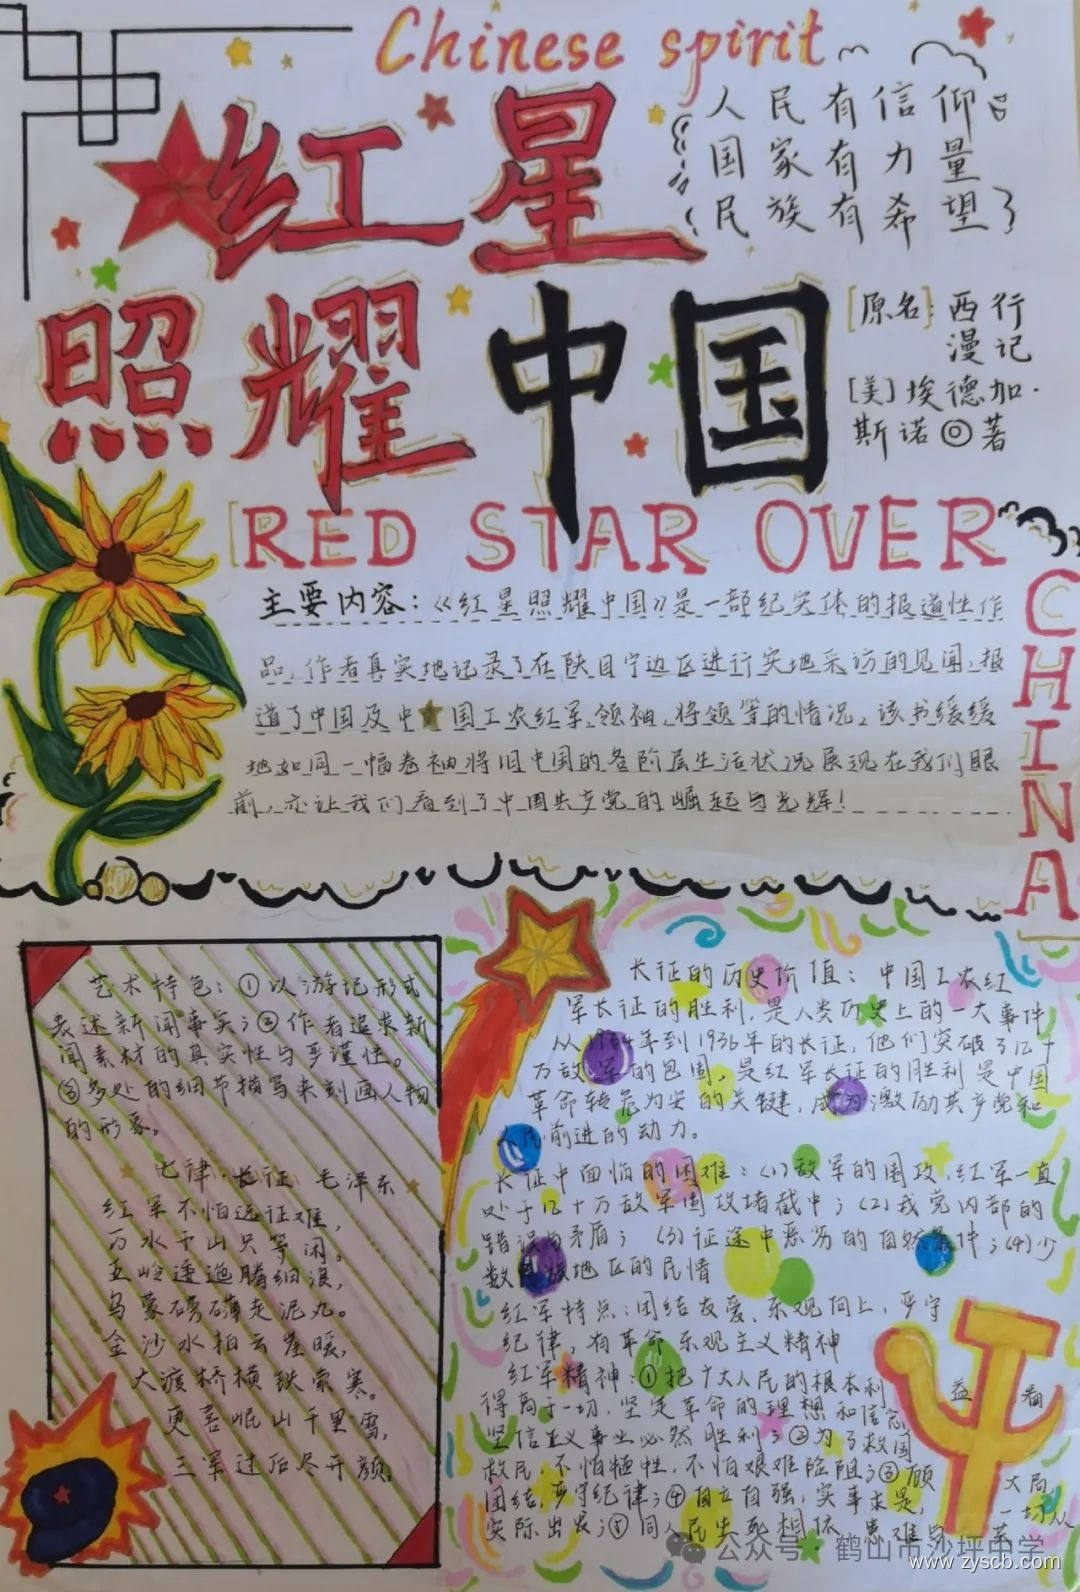 Chinese spirit
红星
照耀中国
人民有信仰
国家有力量
民族有希望
[原名]:西行
漫记
[美]埃德加·
斯诺◎著
RED STAR OVER
CHINA
主要内容:《红星照耀中国》是一部纪实体的报道性作
品,作者真实地记录了在陕目宁边区进行实地采访的见闻,报
道了中国及中★国工农红军,领袖,将领等的情况。该书缓缓
地如同一幅卷袖将旧中国的各阶层生活状况展现在我们眼
前,亦让我们看到了中国共产党的崛起与光辉!
艺术特色:①以游记形式
表述新闻事实;②作者追求新
闻素材的真实性与严谨性。
③多处的细节描写来刻画人物
的形象。
七律·长征 毛泽东
红军不怕远征难,
万水千山只等闲。
五岭逶迤腾细浪,
乌蒙磅礴走泥丸。
金沙水拍云崖暖,
大渡桥横铁索寒。
更喜岷山千里雪,
三军过后尽开颜。
长征的历史价值:中国工农红
军长征的胜利,是人类历史上的一大事件
从1934年到1936年的长征,他们突破了几十
万敌军的包围,是红军长征的胜利是中国
革命转危为安的关键,成为激励共产党和
人民前进的动力。
长征中面怕的困难:(1)敌军的围攻,红军一直
处于几十万敌军围攻堵截中;(2)我党内部的
错误与矛盾;(3)征途中恶劣的自然条件;(4)少
数民族地区的民情
红军特点:团结友爱、乐观向上,严守
纪律,有革命乐观主义精神
红军精神:①把广大人民的根本利益看
得高于一切,坚定革命的理想和信念
坚信正义事业必然胜利;②为了救国
救民,不怕牺牲,不怕艰难险阻;③顾大局,
团结,严守纪律;④自立自强,实事求是,一切从
实际出发;⑤同人民生死相依,患难与共
公众号·鹤山市沙坪中学
www.zyscb.com